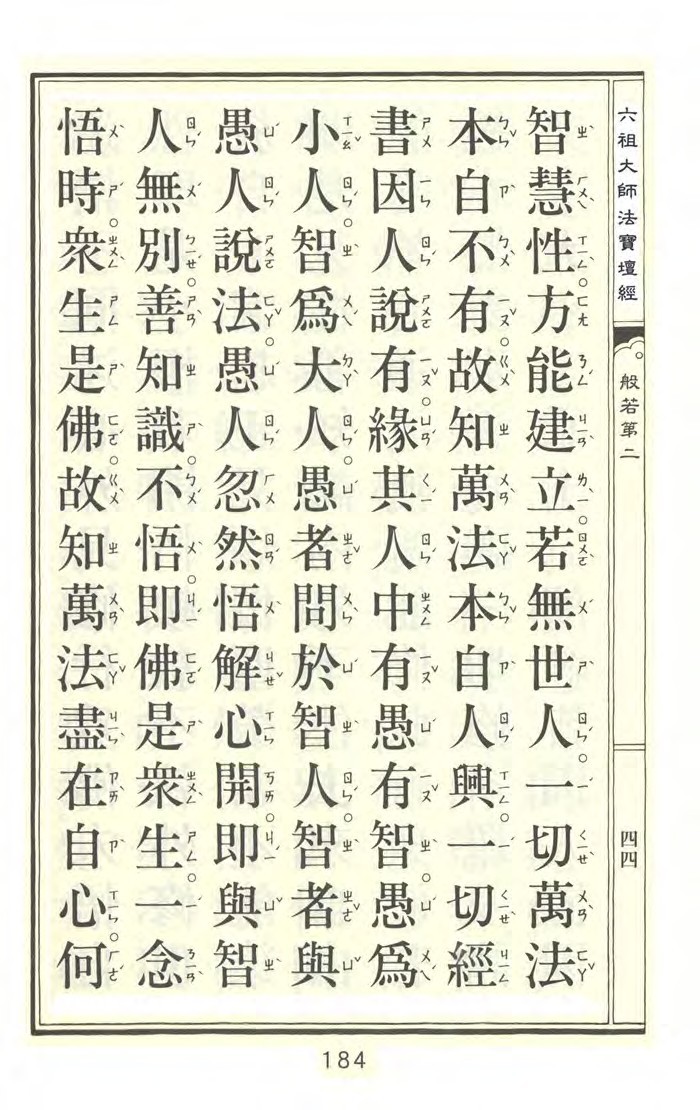 六祖大師法寶壇經 般若第二 四四
智慧性。方能建立。若無世人。一切萬法
本自不有。故知萬法本自人興。一切經
書因人說有。緣其人中有愚有智。愚爲
小人。智爲大人。愚者問於智人。智者與
愚人說法。愚人忽然悟解心開。即與智
人無別。善知識。不悟。即佛是衆生。一念
悟時。衆生是佛。故知萬法盡在自心。何
184